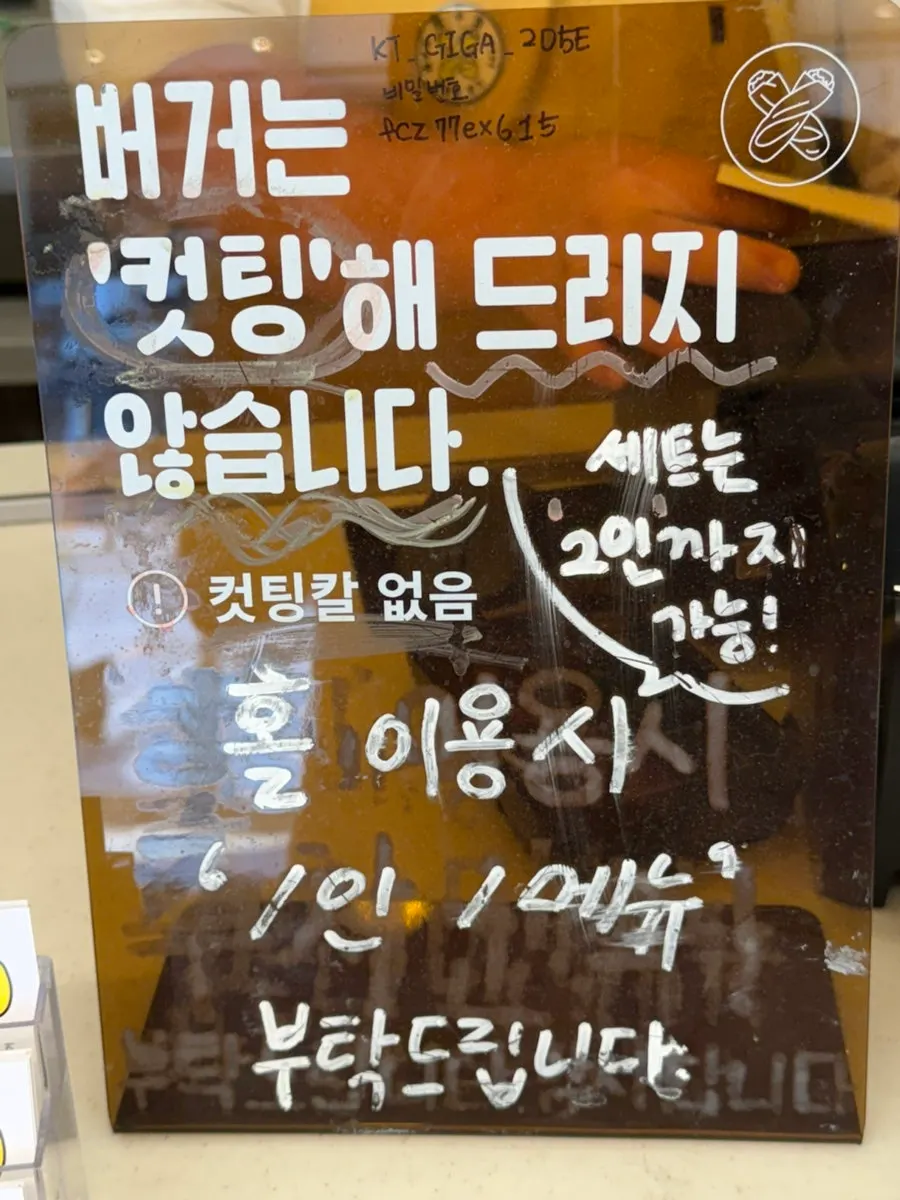 KT_GIGA_205E
비밀번호
fcz77ex615
버거는
'컷팅'해 드리지
않습니다.
세트는
2인까지
가능!
! 컷팅칼 없음
홀 이용시
‘1인 1메뉴’
부탁드립니다.